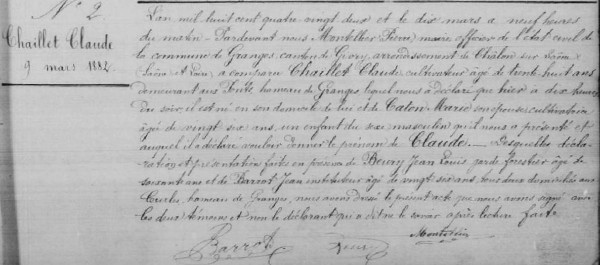 N° 2
Chaillet Claude
9 mars 1882.
L'an mil huit cent quatre vingt deux et le dix mars a neuf heures
du matin. Pardevant nous Montellier Pierre, maire officier de l'état civil de
la commune de Granges, canton de Givry, arrondissement de Châlon sur Saône
(Saône et Loire, a comparu Chaillet Claude, cultivateur âgé de trente huit ans
demeurant aux hameau de Granges, lequel nous a déclaré que hier à dix heures
du soir, il est né en son domicile de lui et de Caton Marie son épouse, cultivatrice
âgée de vingt six ans, un enfant du sexe masculin qu'il nous a présenté et
auquel il a déclaré vouloir donner le prénom de Claude. Lesquelles décla-
ration et présentation faites en présence de Beury Jean Louis garde forestier âgé de
soixante ans et de Barrot Jean instituteur âgé de vingt six ans, tous deux domiciliés aux
hameau de Granges, nous avons dressé le présent acte que nous avons signé avec
les deux témoins et non le déclarant qui a dit ne le savoir après lecture faite
Barrot Beury Montellier